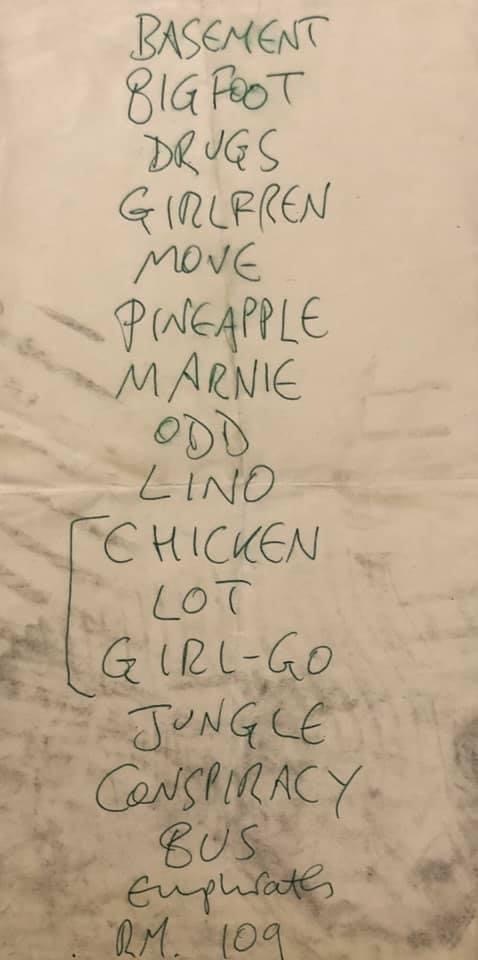 BASEMENT
BIGFOOT
DRUGS
GIRLFREN
MOVE
PINEAPPLE
MARNIE
ODD
LINO
CHICKEN
LOT
GIRL-GO
JUNGLE
CONSPIRACY
BUS
Euphrates
RM. 109